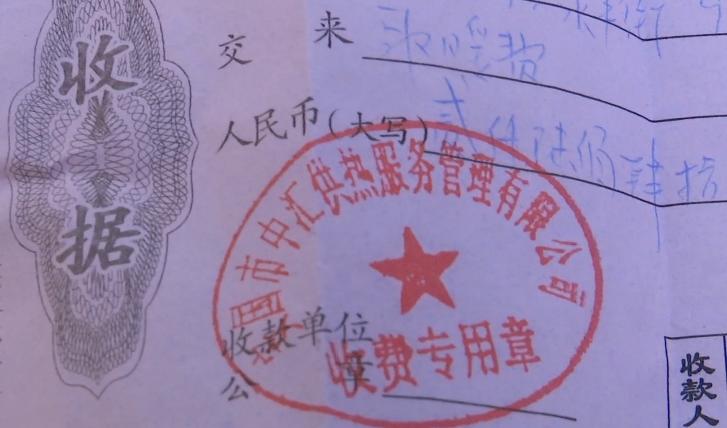 收据
交 来 取暖费
人民币(大写) 贰仟陆佰肆拾
国市中汇供热服务管理有限公司
收费专用章
收款单位
公 章
收款人